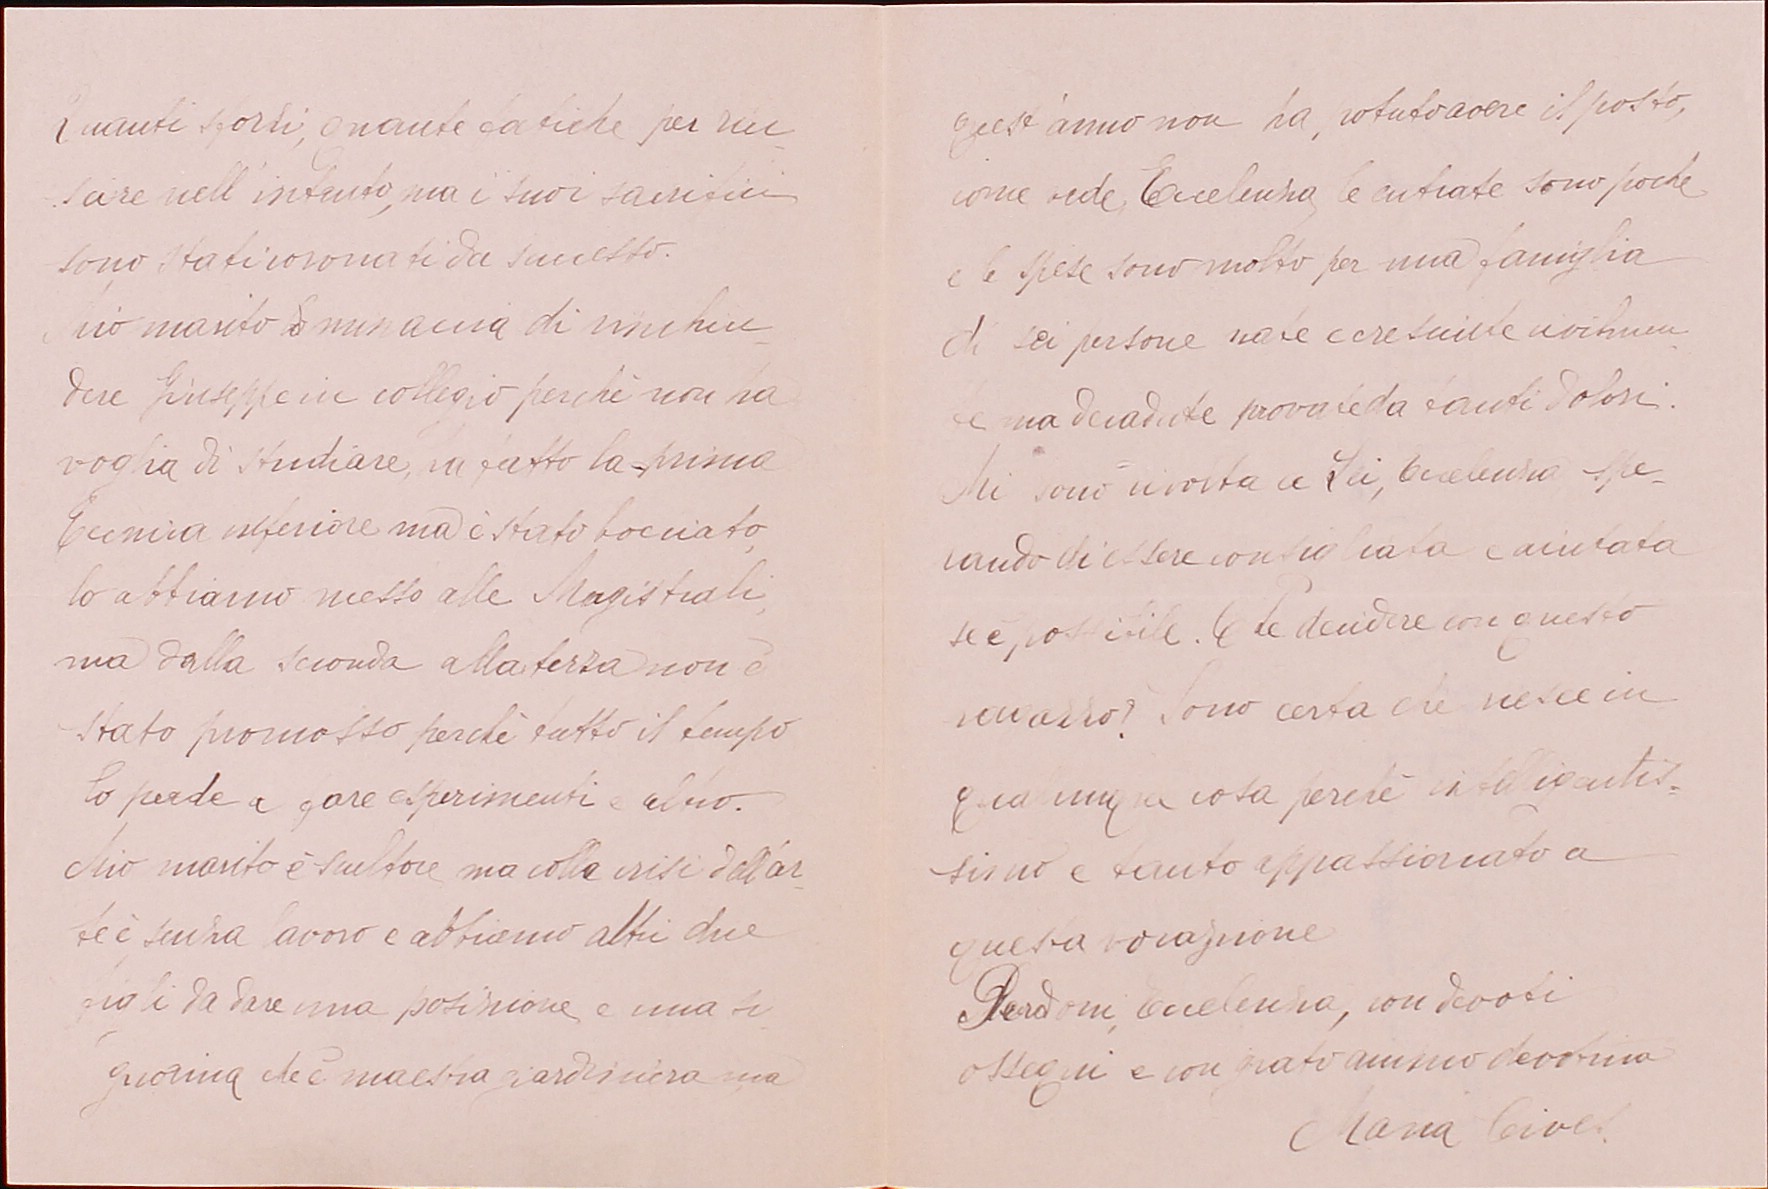 Quanti sforzi, quante fatiche per riu-
scire nell'intento, ma i suoi sacrifici
sono stati coronati da successo.
Mio marito minaccia di rinchiu-
dere Giuseppe in collegio perchè non ha
voglia di studiare, ha fatto la prima
Tecnica inferiore ma è stato bocciato,
lo abbiamo messo alle Magistrali,
ma dalla seconda alla terza non è
stato promosso perchè tutto il tempo
lo perde a fare esperimenti e altro.
Mio marito è scultore ma colla crisi dell'ar-
te è senza lavoro e abbiamo altri due
figli da dare una posizione e una si
gnorina che è maestra giardiniera ma
quest'anno non ha potuto avere il posto,
come vede, Eccelenza, le entrate sono poche
e le spese sono molto per una famiglia
di sei persone nate e cresciute civilmen-
te ma decadute provate da tanti dolori.
Mi sono rivolta a Lei, Eccelenza spe-
rando di essere consigliata e aiutata
se è possibile. Che decidere con questo
ragazzo? Sono certa che riesce in
qualunque cosa perchè intelligentis-
simo e tanto appassionato a
questa vocazione
Perdoni, Eccelenza, con devoti
ossequi e con grato animo devotima
Maria